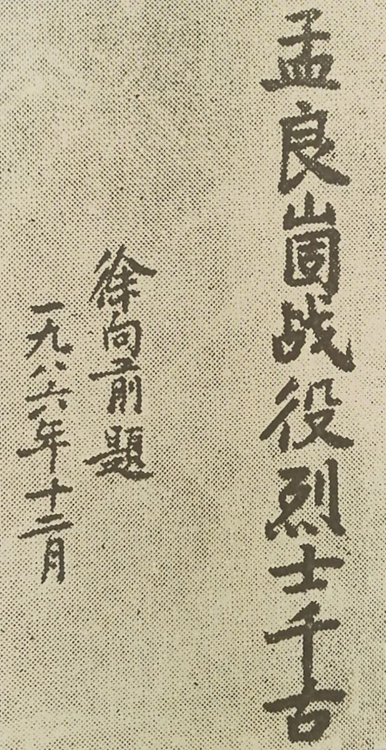 孟良崮战役烈士千古
徐向前题
一九八六年十二月